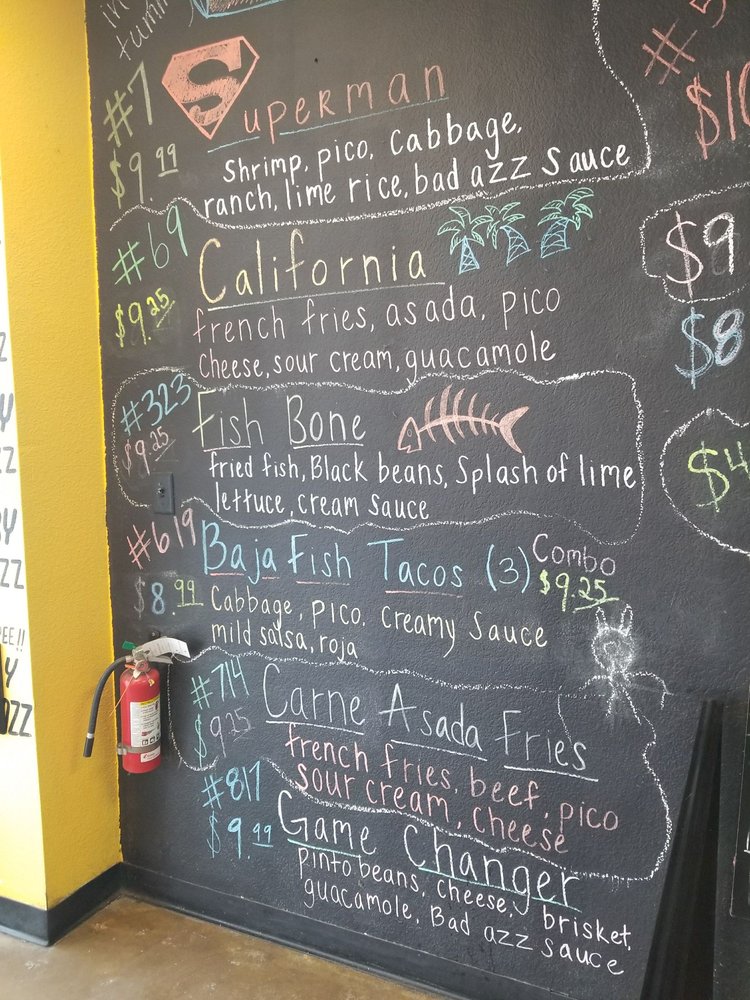 in
tummy
#7
Superman
$9.99
shrimp, pico, cabbage,
ranch, lime rice, bad azz sauce
#69
California
$9.25
french fries, asada, pico
cheese, sour cream, guacamole
#323
Fish Bone
$9.25
fried fish, Black beans, Splash of lime
lettuce, cream sauce
#619
Baja Fish Tacos (3)
Combo
$9.25
$8.99
Cabbage, pico, creamy sauce
mild salsa, roja
#714
Carne Asada Fries
$9.25
french fries, beef, pico
sour cream, cheese
#817
Game Changer
$9.99
pinto beans, cheese, brisket,
guacamole, Bad azz sauce
#5
$10
$9
$8
$4